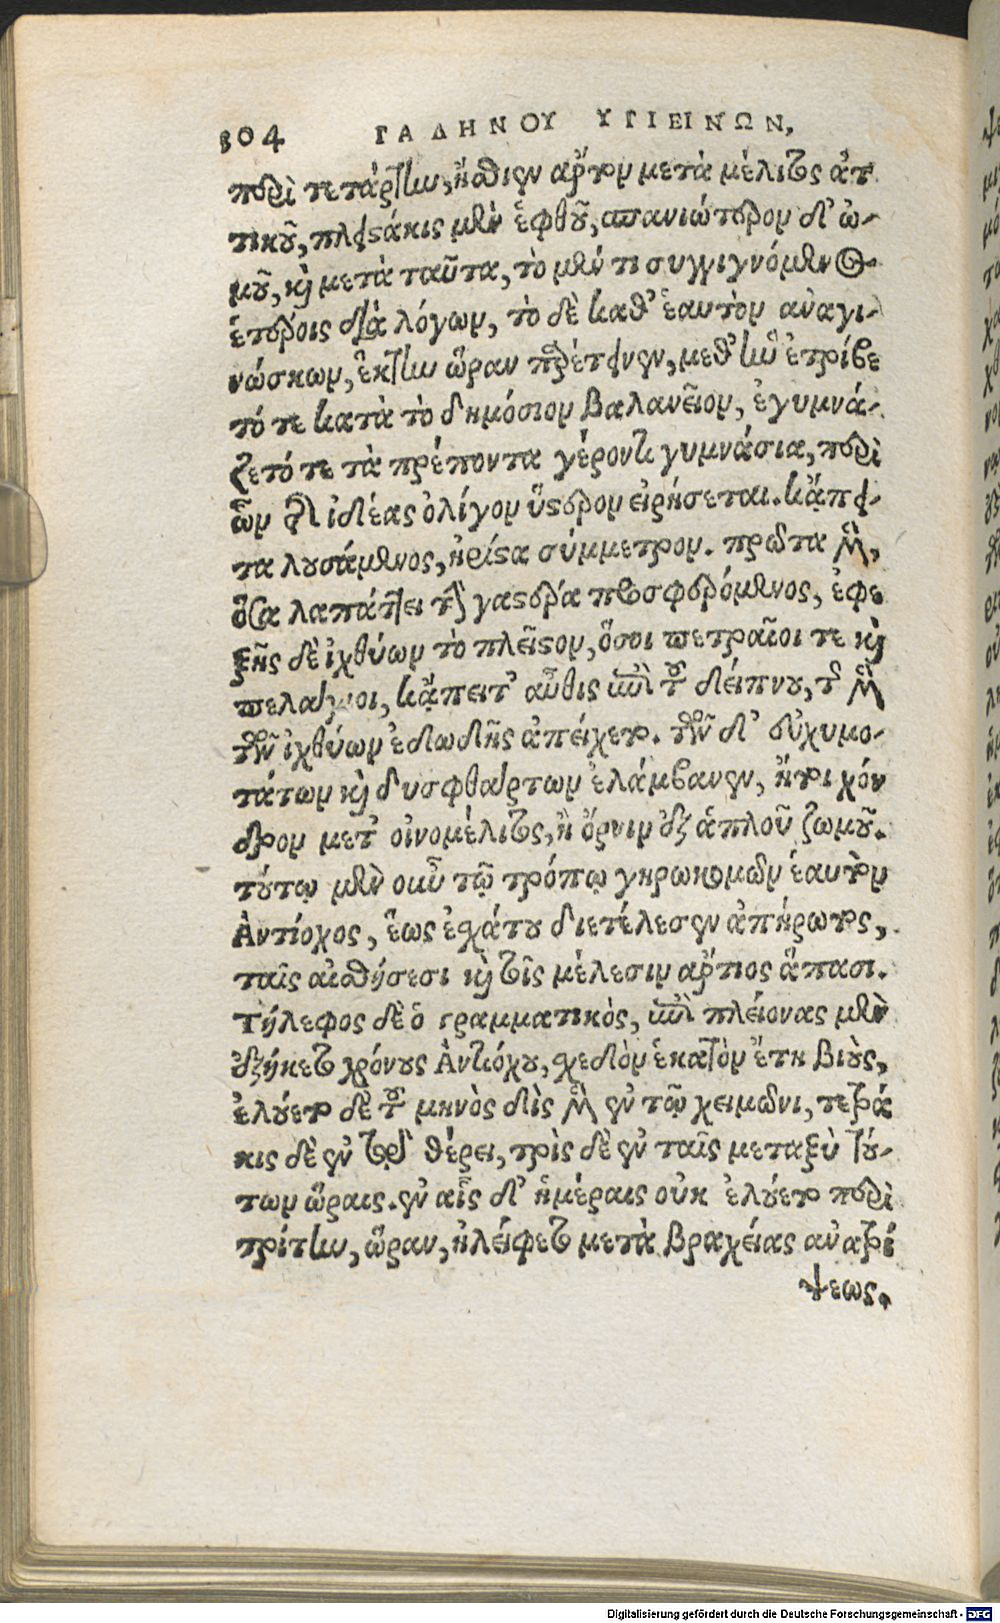 304 ΓΑΛΗΝΟΥ ΥΓΙΕΙΝΩΝ,
περὶ τετάρτην, ἤσθιεν ἄρτον μετὰ μέλιτος ἀτ
τικοῦ, πλειστάκις μὲν ἑφθοῦ, σπανιώτερον δ' ὠ-
μοῦ, καὶ μετὰ ταῦτα, τὸ μέν τι συγγιγνόμενος
ἑτέροις διὰ λόγων, τὸ δὲ καθ' ἑαυτὸν ἀναγι-
νώσκων, ἕκτην ὥραν παρέτεινεν, μεθ' ἣν ἐτρίβε
τό τε κατὰ τὸ δημόσιον βαλανεῖον, ἐγυμνά-
ζετό τε τὰ πρέποντα γέροντι γυμνάσια, περὶ
ὧν τῆς ἰδέας ὀλίγον ὕστερον εἰρήσεται. κἄπει-
τα λουσάμενος, ἠρίστα σύμμετρον. πρῶτα μὲν,
ὅσα λαπάττει τὴν γαστέρα προσφερόμενος, ἐφε
ξῆς δὲ ἰχθύων τὸ πλεῖστον, ὅσοι πετραῖοι τε καὶ
πελάγιοι, κἄπειτ' αὖθις ἐπὶ τοῦ δείπνου, τῆς μὲν
τῶν ἰχθύων ἐδωδῆς ἀπείχετο. τῶν δ' εὐχυμο-
τάτων καὶ δυσφθάρτων ἐλάμβανεν, ἤτοι χόν
δρον μετ' οἰνομέλιτος, ἢ ὄρνιν ἐξ ἁπλοῦ ζωμοῦ.
τούτῳ μὲν οὖν τῷ τρόπῳ γηρωκομῶν ἑαυτὸν
Ἀντίοχος, ἕως ἐσχάτου διετέλεσεν ἀπήρωτος,
ταῖς αἰσθήσεσι καὶ τοῖς μέλεσιν ἄρτιος ἅπασι.
Τήλεφος δὲ ὁ γραμματικὸς, ἐπὶ πλείονας μὲν
ἐξήκετο χρόνους Ἀντιόχου, σχεδὸν ἑκατὸν ἔτη βιοὺς,
ἐλούετο δὲ τοῦ μηνὸς δὶς μὲν ἐν τῷ χειμῶνι, τετρά
κις δὲ ἐν τῷ θέρει, τρὶς δὲ ἐν ταῖς μεταξὺ τού-
των ὥραις. ἐν αἷς δ' ἡμέραις οὐκ ἐλούετο περὶ
τρίτην, ὥραν, ἠλείφετο μετὰ βραχείας ἀνατρί
ψεως.
Digitalisierung gefördert durch die Deutsche Forschungsgemeinschaft - DFG